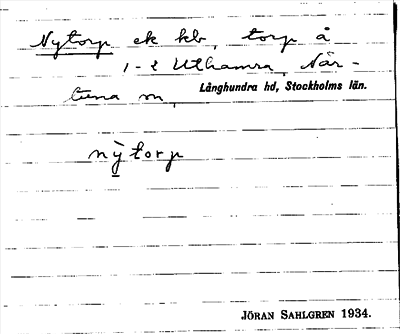 Nytorp ek kb, torp å
1-2 Uthamra, När-
tuna sn,
Långhundra hd, Stockholms län.
nỳtorp
JÖRAN SAHLGREN 1934.